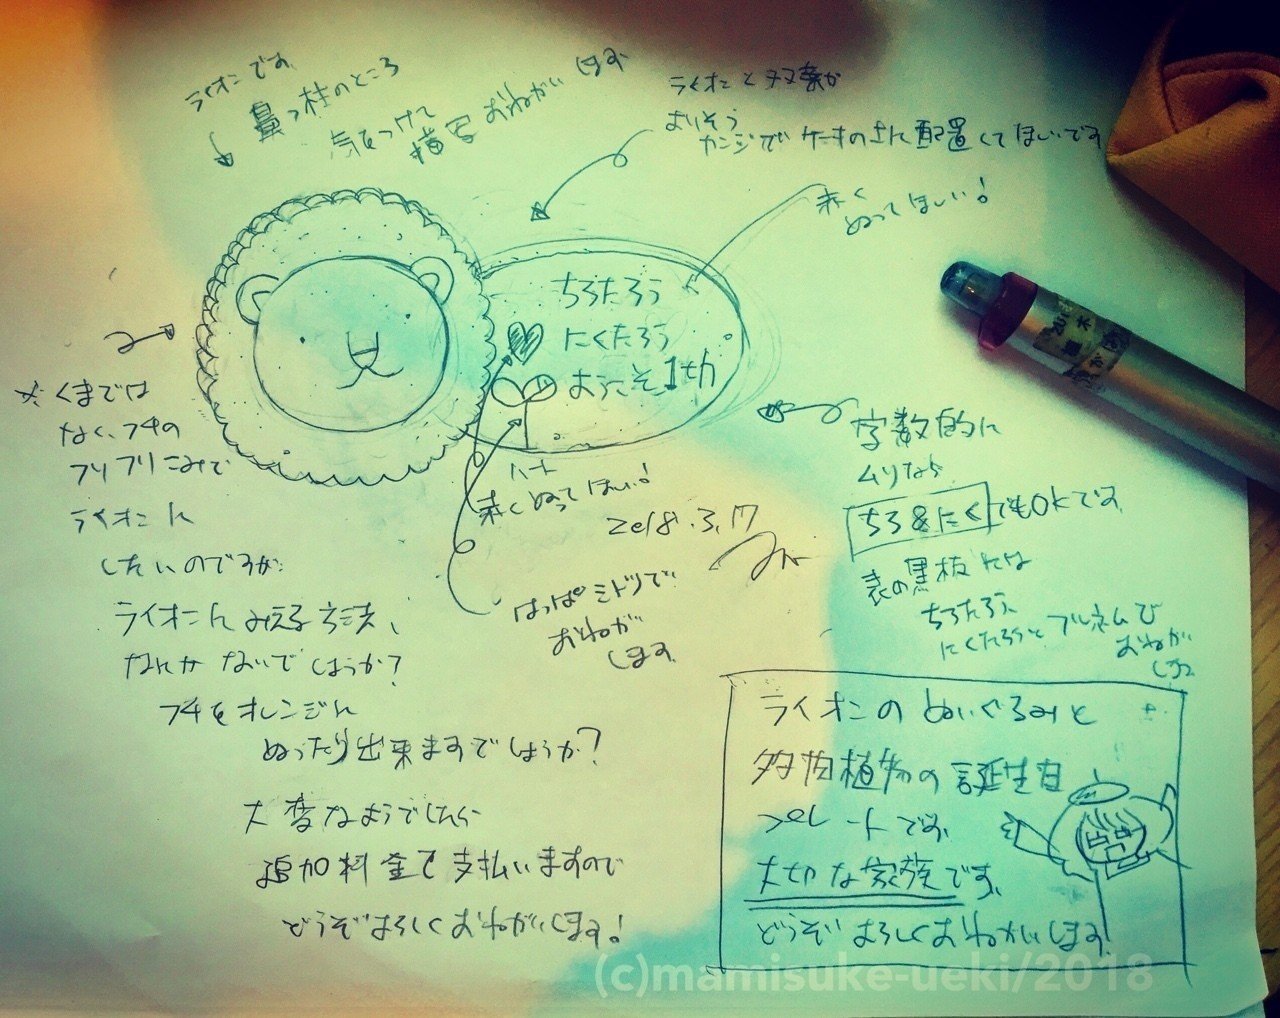 ライオンです。
鼻っ柱のところ
気をつけて
描写おねがいします
ライオンと双葉が
よりそう
カンジでケーキの上に配置してほしいです
赤く
ぬってほしい!
ちろたろう
にくたろう
ようこそ1才
※くまでは
なく、フチの
フリフリこみで
ライオンに
したいのですが、
ライオンにみえる方法、
なにかないでしょうか?
フチをオレンジに
ぬったり出来ますでしょうか?
大変なようでしたら
追加料金で支払いますので
どうぞよろしくおねがいします!
ハート
赤くぬってほしい!
2018.3.17
はっぱミドリで
おねがい
します。
字数的に
ムリなら
ちろ&にくでもOKです。
表の黒板には
ちろたろう、
にくたろうとフルネームで
おねがい
します
ライオンのぬいぐるみと
多肉植物の誕生日
プレートです。
大切な家族です。
どうぞよろしくおねがいします。
(c)mamisuke-ueki/2018